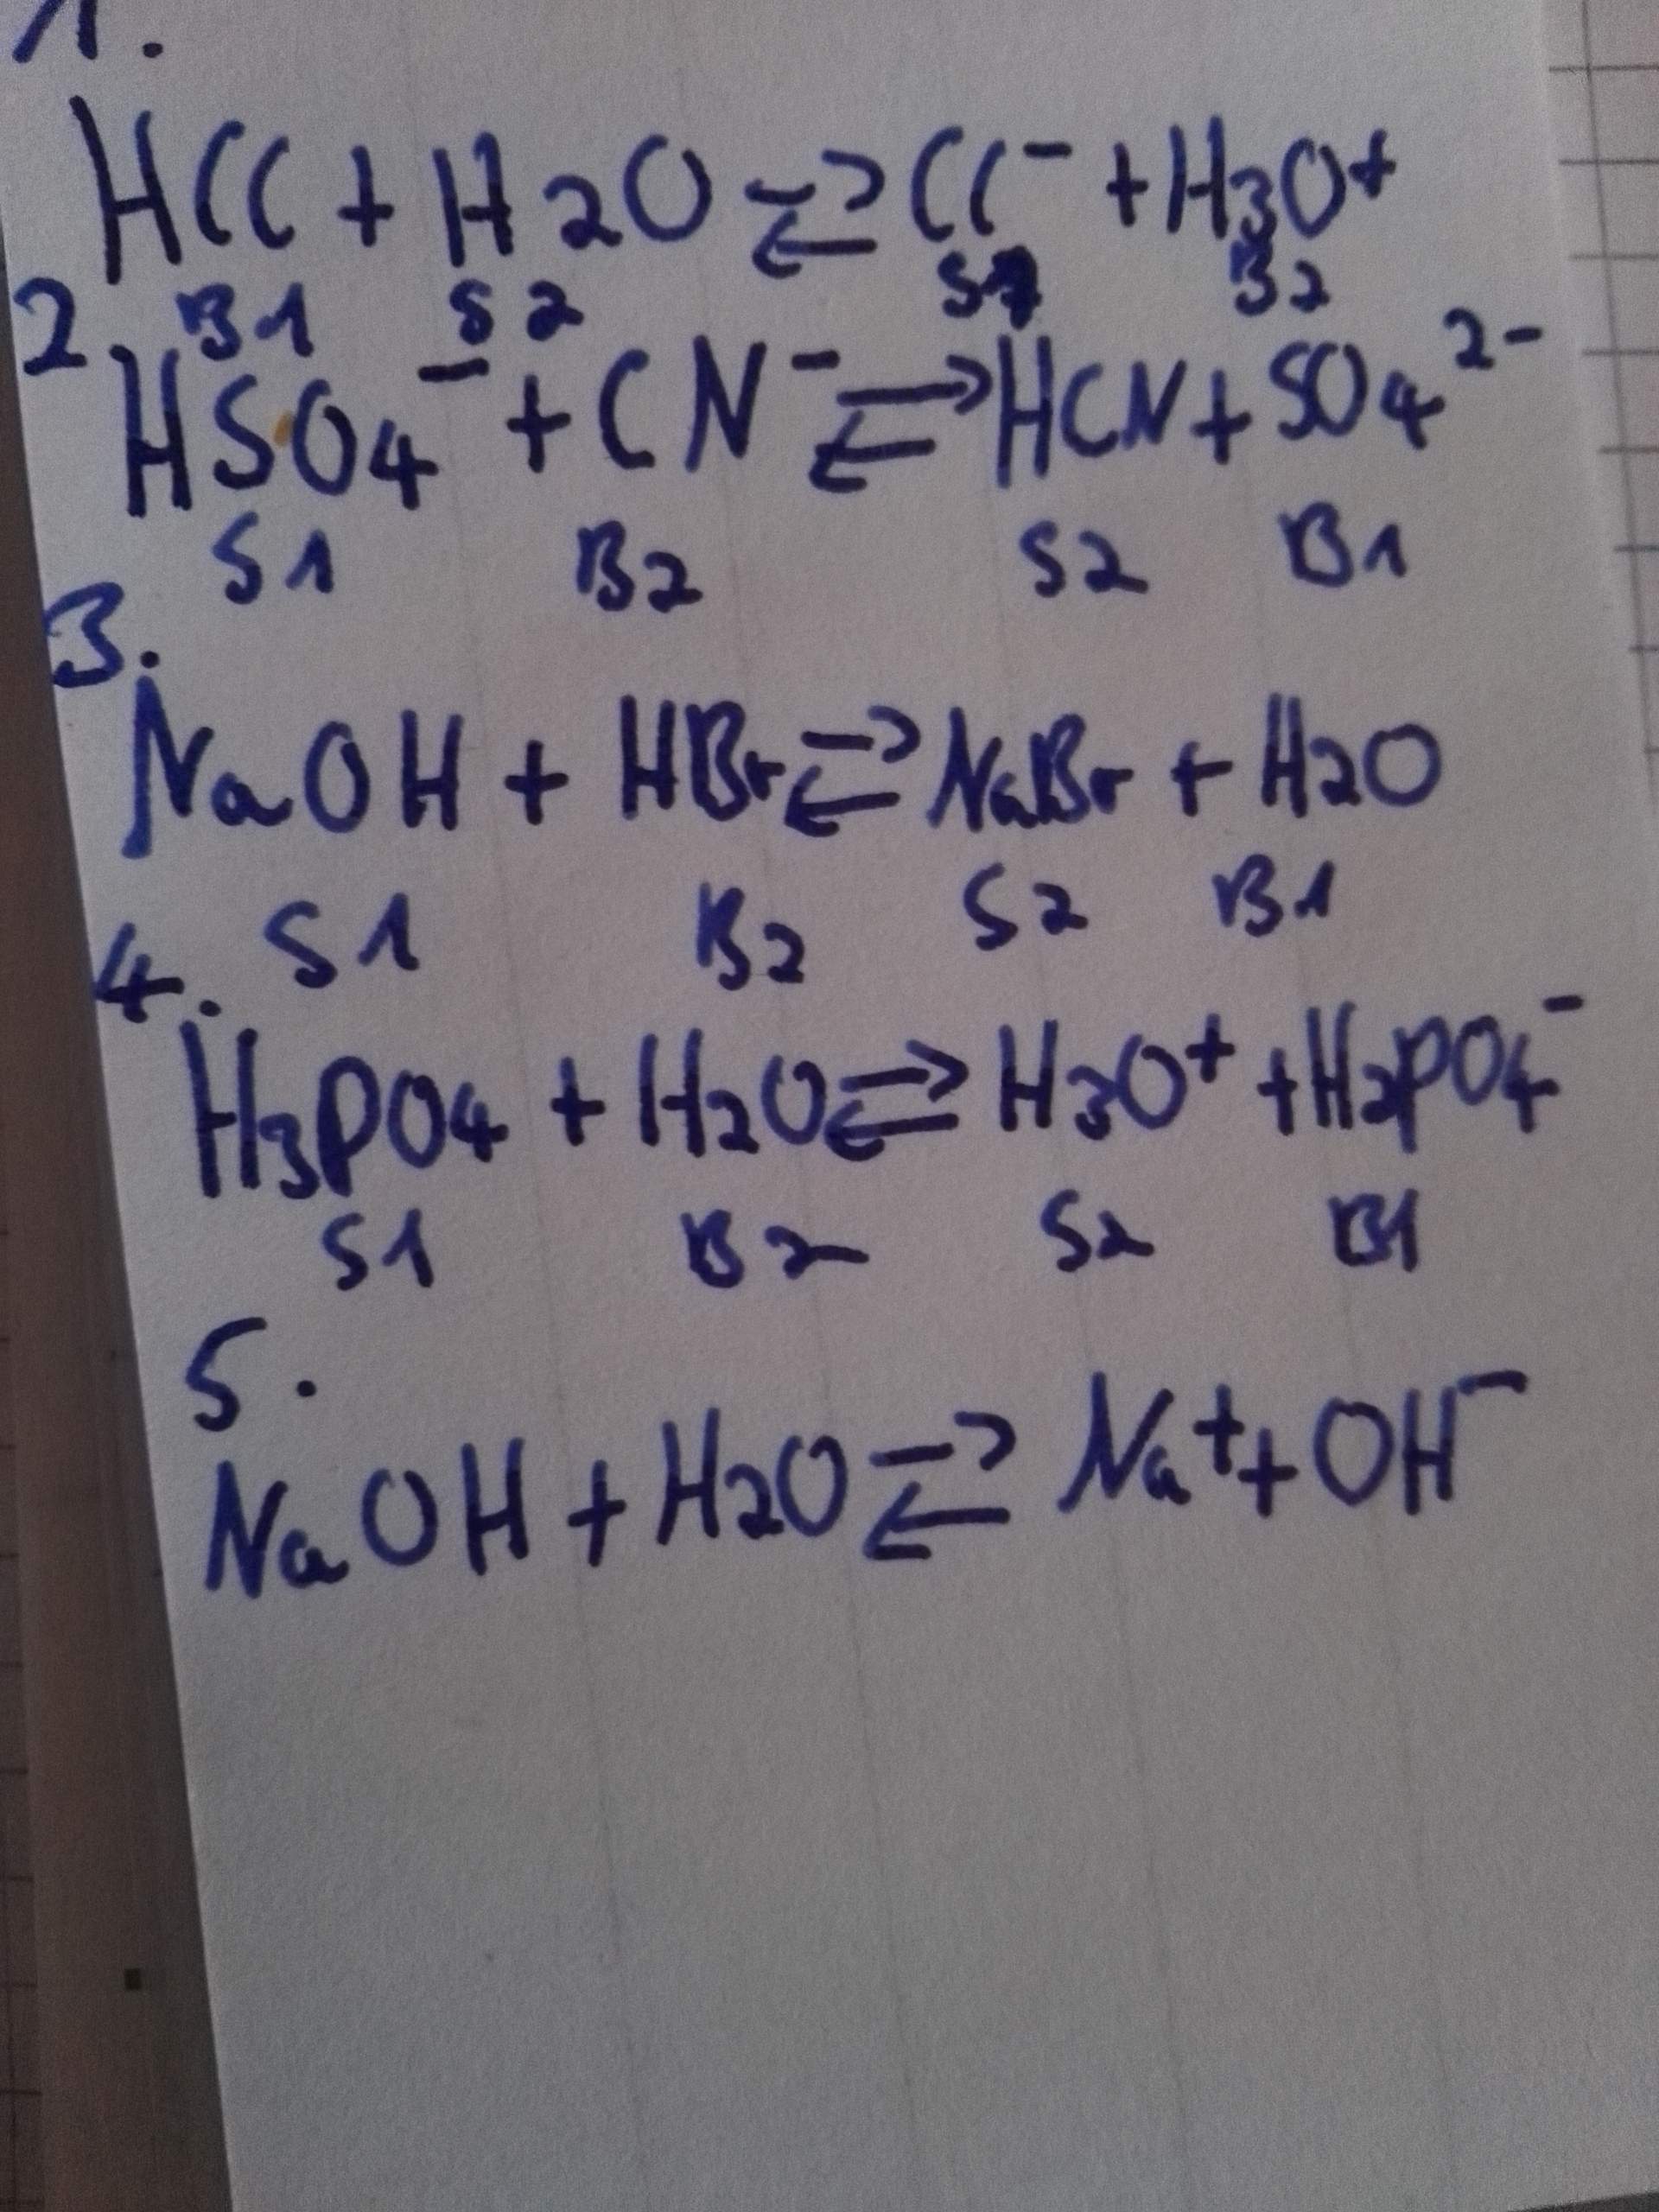 1.
HCl + H2O ⇄ Cl⁻ + H3O+
B1 S2 S1 B2
2.
HSO4⁻ + CN⁻ ⇄ HCN + SO4²⁻
S1 B2 S2 B1
3.
NaOH + HBr ⇄ NaBr + H2O
S1 B2 S2 B1
4.
H3PO4 + H2O ⇄ H3O⁺ + H2PO4⁻
S1 B2 S2 B1
5.
NaOH + H2O ⇄ Na⁺ + OH⁻